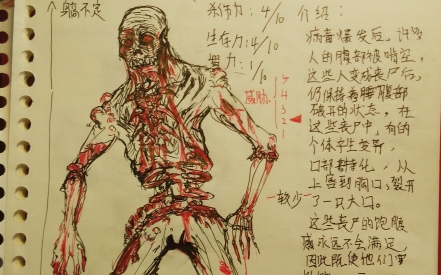 身高不定
杀伤力：4/10
生存力：4/10
智力：1/10
威胁
5
4
3
2
1
介绍：
病毒爆发后，许多
人的腹部被啃空，
这些人变成丧尸后，
仍保持着腰腹部
破开的状态。在
这些丧尸中，有的
个体产生变异，
口部特化，从
上唇到胸口，裂开
一较少了一只大口。
这些丧尸的饱腹
感永远不会满足，
因此既使他们